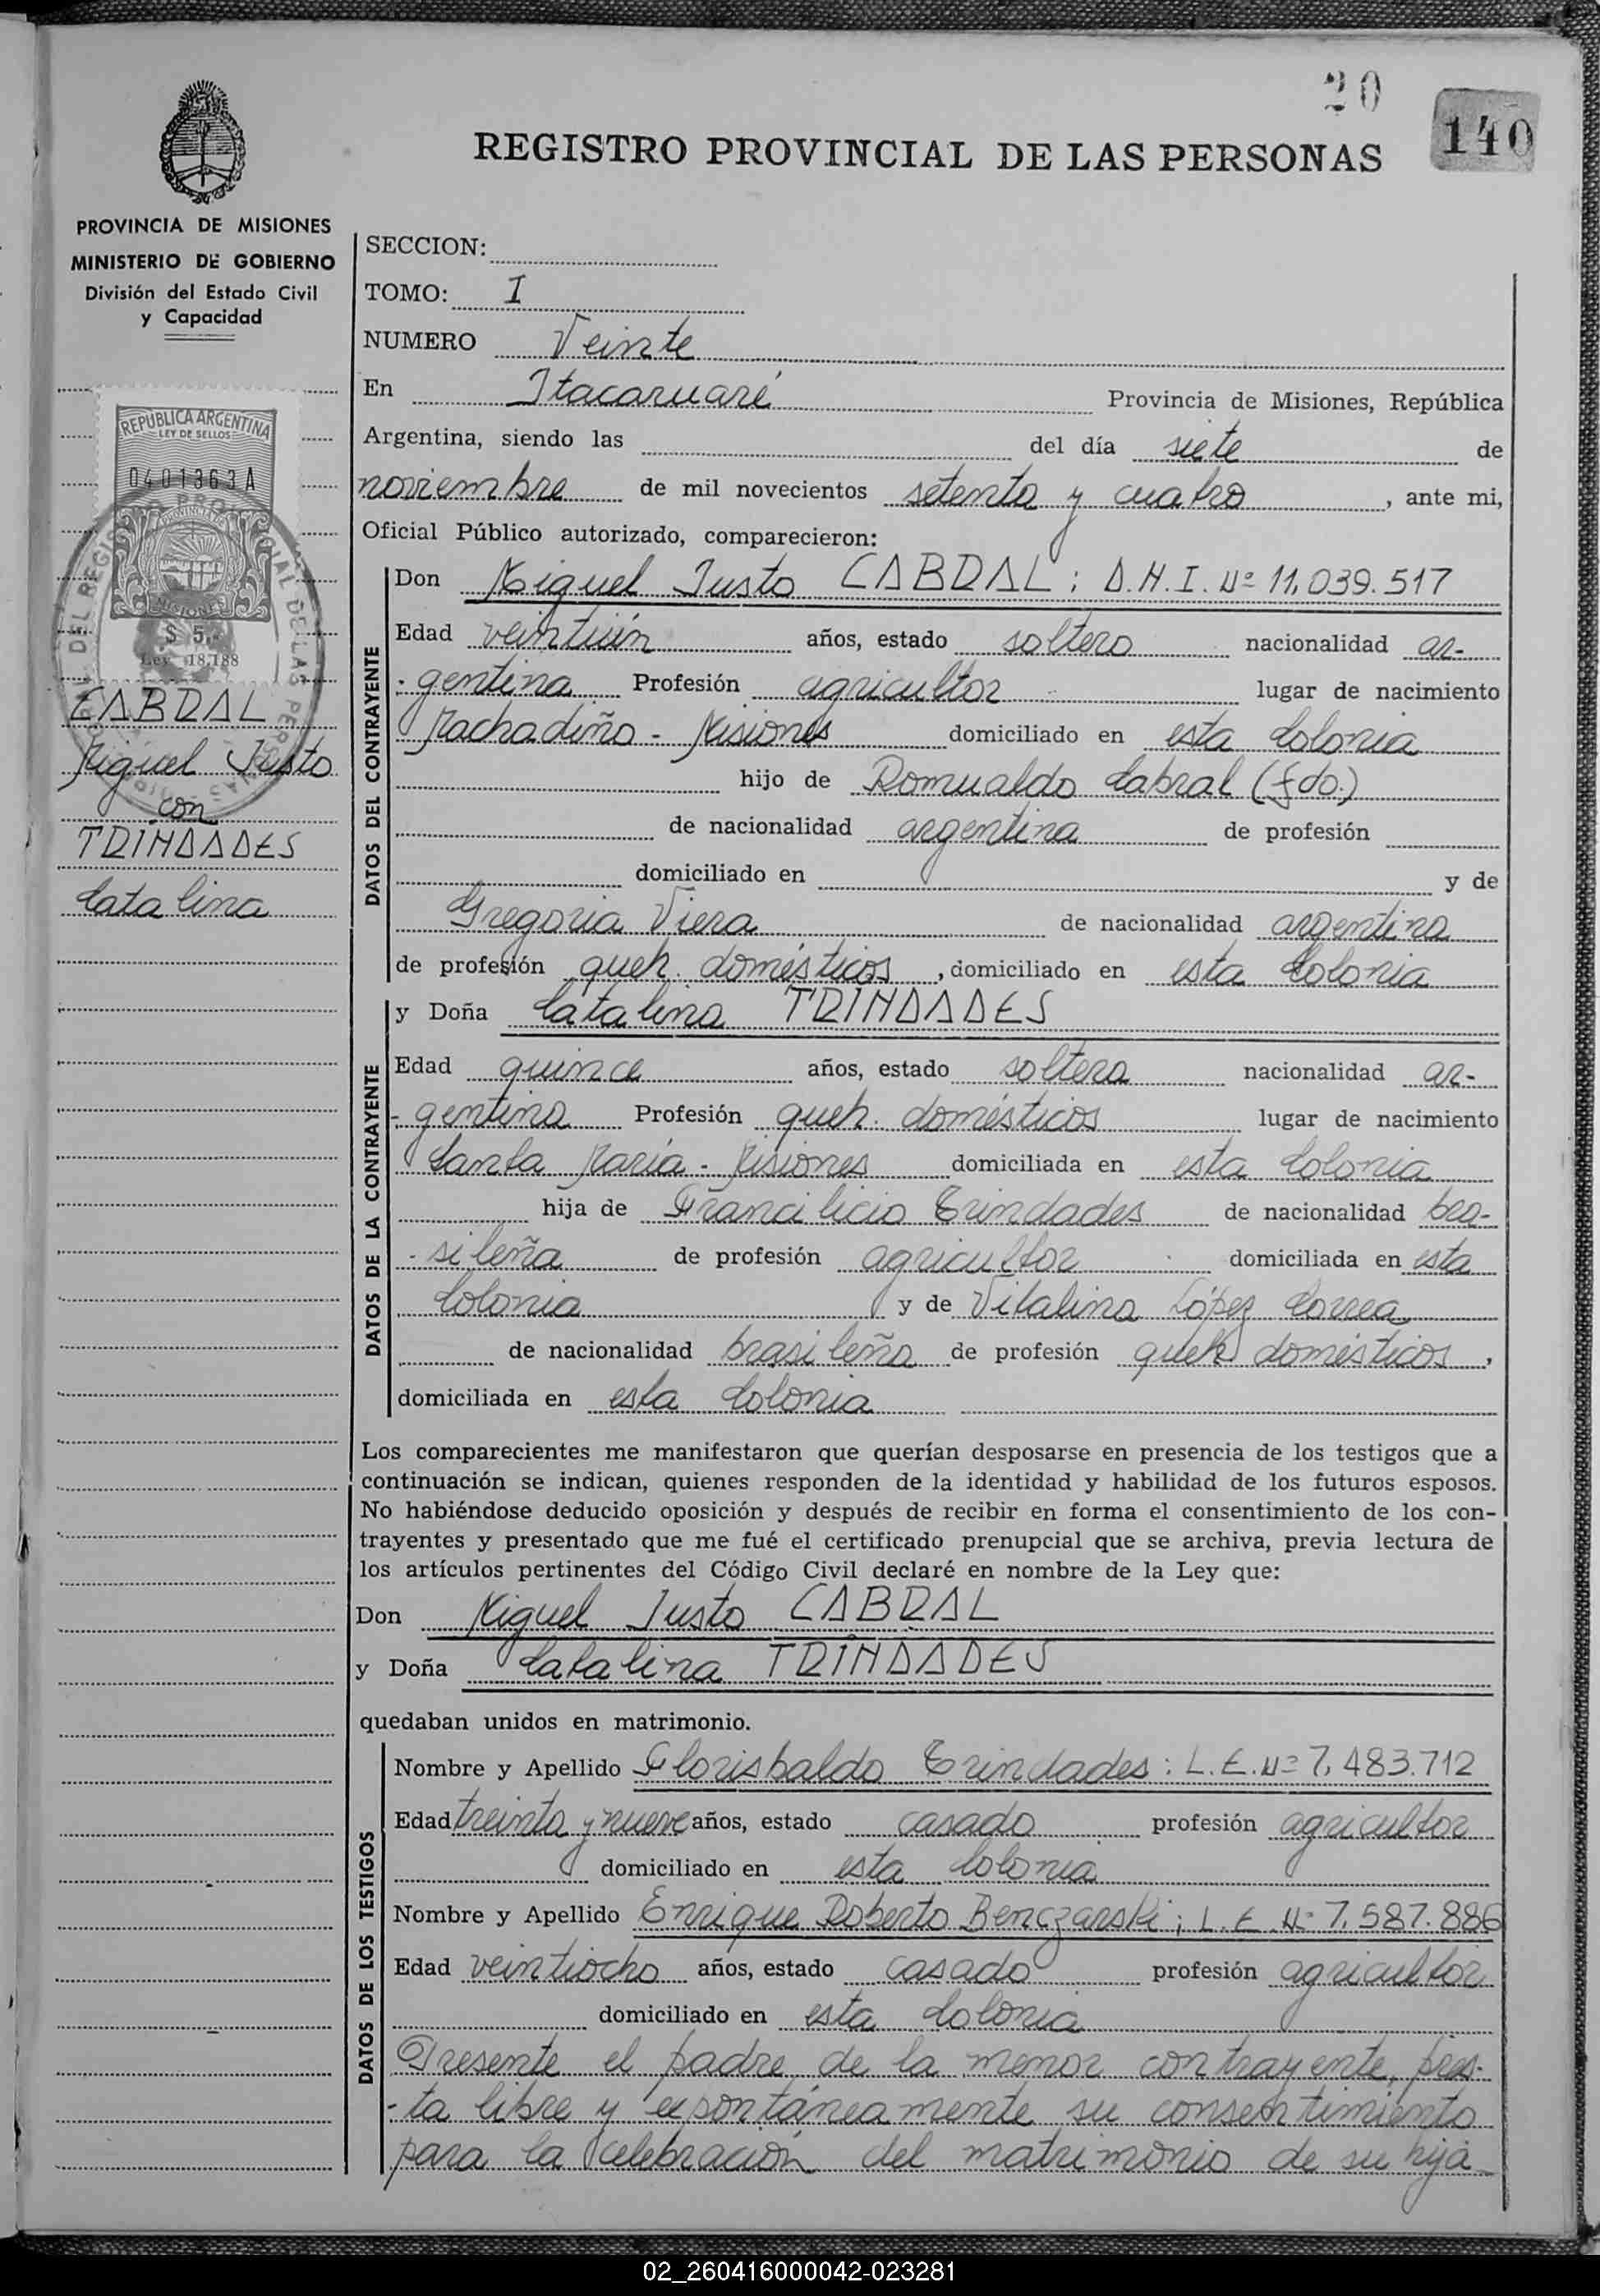 20
140
REGISTRO PROVINCIAL DE LAS PERSONAS
PROVINCIA DE MISIONES
MINISTERIO DE GOBIERNO
División del Estado Civil
y Capacidad
REPUBLICA ARGENTINA
LEY DE SELLOS
0401363A
MISIONES
$ 5,-
Ley 18.188
CABRAL
Miguel Justo
con
TRINDADES
Catalina
SECCION:
TOMO: I
NUMERO Veinte
En Itacaruaré Provincia de Misiones, República
Argentina, siendo las del día siete de
noviembre de mil novecientos setenta y cuatro, ante mi,
Oficial Público autorizado, comparecieron:
DATOS DEL CONTRAYENTE
Don Miguel Justo CABRAL; D.N.I. Nº 11.039.517
Edad veintiún años, estado soltero nacionalidad ar-
-gentina Profesión agricultor lugar de nacimiento
Machadiño - Misiones domiciliado en esta Colonia
hijo de Romualdo Cabral (fdo.)
de nacionalidad argentina de profesión
domiciliado en y de
Gregoria Viera de nacionalidad argentina
de profesión queh. domésticos, domiciliado en esta Colonia
DATOS DE LA CONTRAYENTE
y Doña Catalina TRINDADES
Edad quince años, estado soltera nacionalidad ar-
-gentina Profesión queh. domésticos lugar de nacimiento
Santa María - Misiones domiciliada en esta Colonia
hija de Francilicio Trindades de nacionalidad bra-
-sileña de profesión agricultor domiciliada en esta
Colonia y de Vitalina López Correa
de nacionalidad brasileña de profesión queh. domésticos,
domiciliada en esta Colonia
Los comparecientes me manifestaron que querían desposarse en presencia de los testigos que a
continuación se indican, quienes responden de la identidad y habilidad de los futuros esposos.
No habiéndose deducido oposición y después de recibir en forma el consentimiento de los con-
trayentes y presentado que me fué el certificado prenupcial que se archiva, previa lectura de
los artículos pertinentes del Código Civil declaré en nombre de la Ley que:
Don Miguel Justo CABRAL
y Doña Catalina TRINDADES
quedaban unidos en matrimonio.
DATOS DE LOS TESTIGOS
Nombre y Apellido Florisbaldo Trindades: L.E. Nº 7.483.712
Edad treinta y nueve años, estado casado profesión agricultor
domiciliado en esta Colonia
Nombre y Apellido Enrique Roberto Benczarski; L.E. Nº 7.587.886
Edad veintiocho años, estado casado profesión agricultor
domiciliado en esta Colonia
Presente el padre de la menor contrayente, pres-
-ta libre y expontáneamente su consentimiento
para la celebración del matrimonio de su hija
02_260416000042-023281